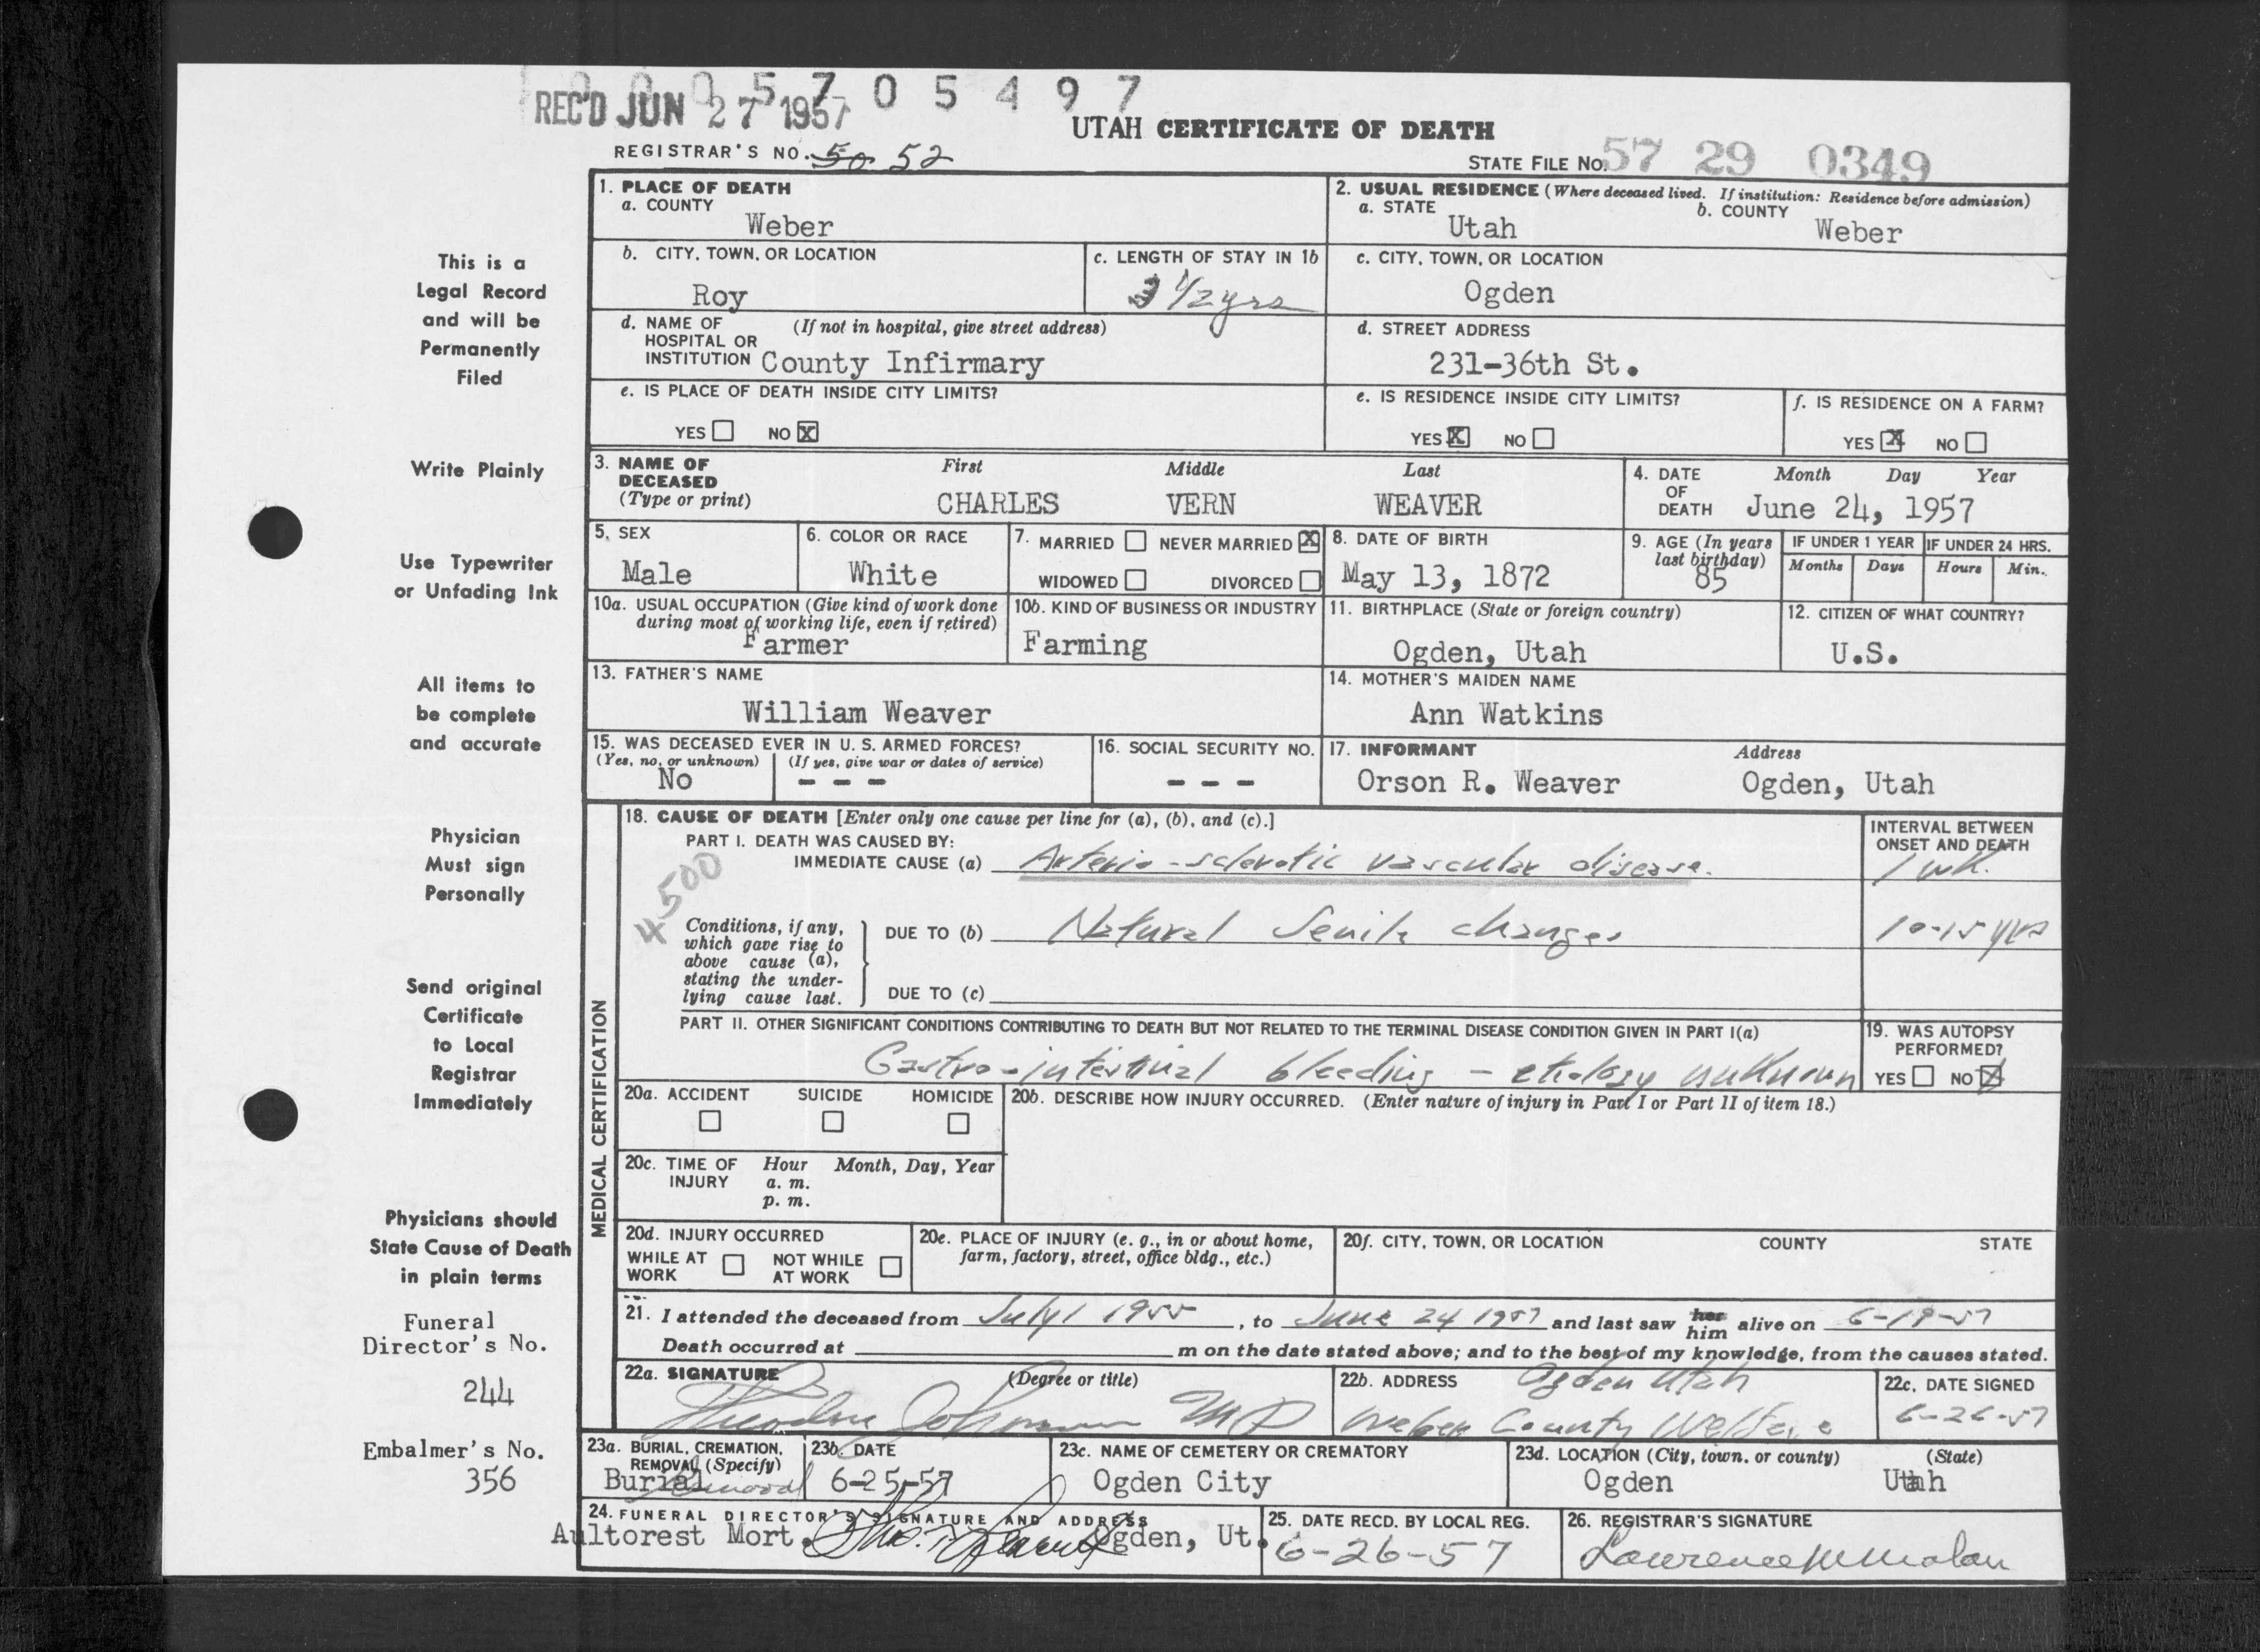 0 0 0 5 7 0 5 4 9 7
REC'D JUN 27 1957
UTAH CERTIFICATE OF DEATH
REGISTRAR'S NO. 50 52
STATE FILE NO. 57 29 0349
This is a
Legal Record
and will be
Permanently
Filed
Write Plainly
Use Typewriter
or Unfading Ink
All items to
be complete
and accurate
Physician
Must sign
Personally
Send original
Certificate
to Local
Registrar
Immediately
Physicians should
State Cause of Death
in plain terms
Funeral
Director's No.
244
Embalmer's No.
356
1. PLACE OF DEATH
a. COUNTY
Weber
2. USUAL RESIDENCE (Where deceased lived. If institution: Residence before admission)
a. STATE b. COUNTY
Utah Weber
b. CITY, TOWN, OR LOCATION
Roy
c. LENGTH OF STAY IN 1b
3 1/2 yrs
c. CITY, TOWN, OR LOCATION
Ogden
d. NAME OF (If not in hospital, give street address)
HOSPITAL OR
INSTITUTION County Infirmary
d. STREET ADDRESS
231-36th St.
e. IS PLACE OF DEATH INSIDE CITY LIMITS?
YES NO X
e. IS RESIDENCE INSIDE CITY LIMITS?
YES X NO
f. IS RESIDENCE ON A FARM?
YES X NO
3. NAME OF First Middle Last
DECEASED
(Type or print) CHARLES VERN WEAVER
4. DATE Month Day Year
OF
DEATH June 24, 1957
5. SEX
Male
6. COLOR OR RACE
White
7. MARRIED NEVER MARRIED X
WIDOWED DIVORCED
8. DATE OF BIRTH
May 13, 1872
9. AGE (In years
last birthday)
85
IF UNDER 1 YEAR IF UNDER 24 HRS.
Months Days Hours Min.
10a. USUAL OCCUPATION (Give kind of work done
during most of working life, even if retired)
Farmer
10b. KIND OF BUSINESS OR INDUSTRY
Farming
11. BIRTHPLACE (State or foreign country)
Ogden, Utah
12. CITIZEN OF WHAT COUNTRY?
U.S.
13. FATHER'S NAME
William Weaver
14. MOTHER'S MAIDEN NAME
Ann Watkins
15. WAS DECEASED EVER IN U. S. ARMED FORCES?
(Yes, no, or unknown) (If yes, give war or dates of service)
No - - -
16. SOCIAL SECURITY NO.
- - -
17. INFORMANT Address
Orson R. Weaver Ogden, Utah
MEDICAL CERTIFICATION
18. CAUSE OF DEATH [Enter only one cause per line for (a), (b), and (c).]
PART I. DEATH WAS CAUSED BY:
IMMEDIATE CAUSE (a) Arterio-sclerotic vascular disease.
INTERVAL BETWEEN
ONSET AND DEATH
1 wk.
4 500
Conditions, if any,
which gave rise to
above cause (a),
stating the under-
lying cause last.
DUE TO (b) Natural Senile changes
10-15 yrs
DUE TO (c)
PART II. OTHER SIGNIFICANT CONDITIONS CONTRIBUTING TO DEATH BUT NOT RELATED TO THE TERMINAL DISEASE CONDITION GIVEN IN PART I(a)
Gastro-intestinal bleeding - etiology unknown
19. WAS AUTOPSY
PERFORMED?
YES NO X
20a. ACCIDENT SUICIDE HOMICIDE
20b. DESCRIBE HOW INJURY OCCURRED. (Enter nature of injury in Part I or Part II of item 18.)
20c. TIME OF Hour Month, Day, Year
INJURY a. m.
p. m.
20d. INJURY OCCURRED
WHILE AT NOT WHILE
WORK AT WORK
20e. PLACE OF INJURY (e. g., in or about home,
farm, factory, street, office bldg., etc.)
20f. CITY, TOWN, OR LOCATION COUNTY STATE
21. I attended the deceased from July 1 1955, to June 24 1957 and last saw her him alive on 6-19-57
Death occurred at m on the date stated above; and to the best of my knowledge, from the causes stated.
22a. SIGNATURE (Degree or title)
Theodore Johnson MD
22b. ADDRESS Ogden Utah
Weber County Welfare
22c. DATE SIGNED
6-26-57
23a. BURIAL, CREMATION,
REMOVAL (Specify)
Burial
23b. DATE
6-25-57
23c. NAME OF CEMETERY OR CREMATORY
Ogden City
23d. LOCATION (City, town, or county) (State)
Ogden Utah
24. FUNERAL DIRECTOR'S SIGNATURE AND ADDRESS
Aultorest Mort. Ogden, Ut.
25. DATE RECD. BY LOCAL REG.
6-26-57
26. REGISTRAR'S SIGNATURE
Lawrence M Malan